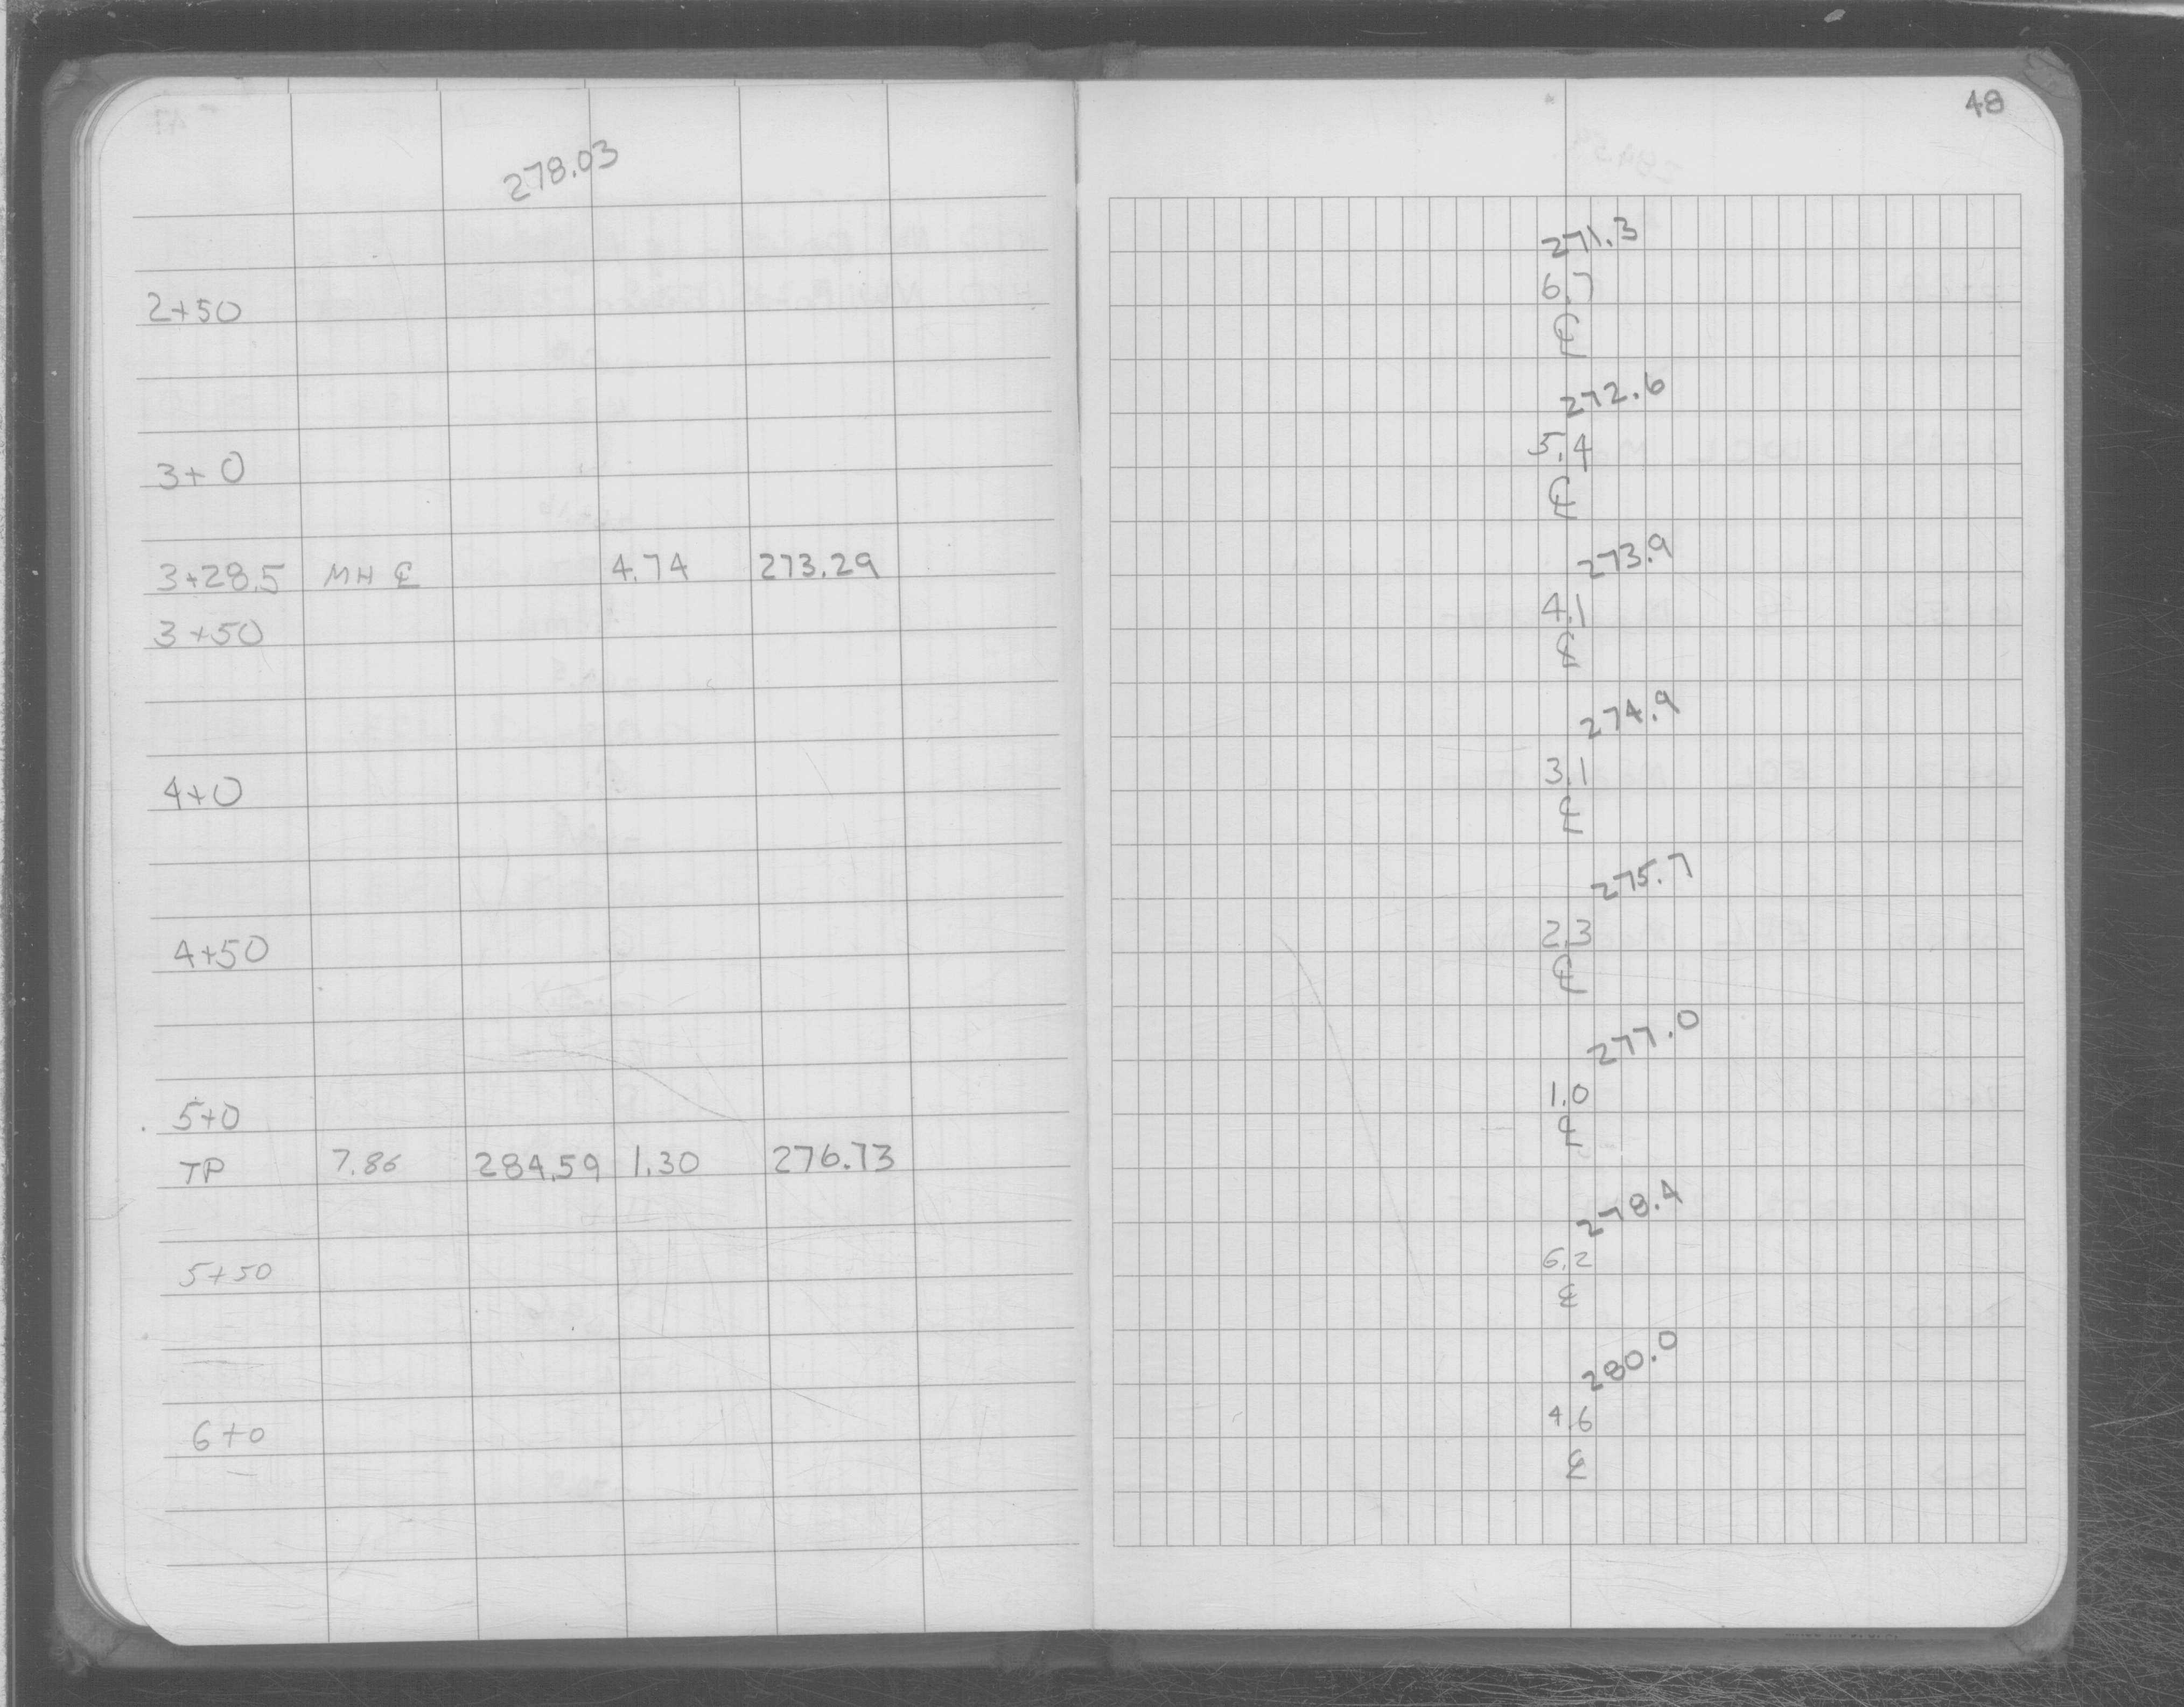 278.03
2+50
3+0
3+28.5 MH ℄ 4.74 273.29
3+50
4+0
4+50
5+0
TP 7.86 284.59 1.30 276.73
5+50
6+0
48
271.3
6.7
℄
272.6
5.4
℄
273.9
4.1
℄
274.9
3.1
℄
275.7
2.3
℄
277.0
1.0
℄
278.4
6.2
℄
280.0
4.6
℄